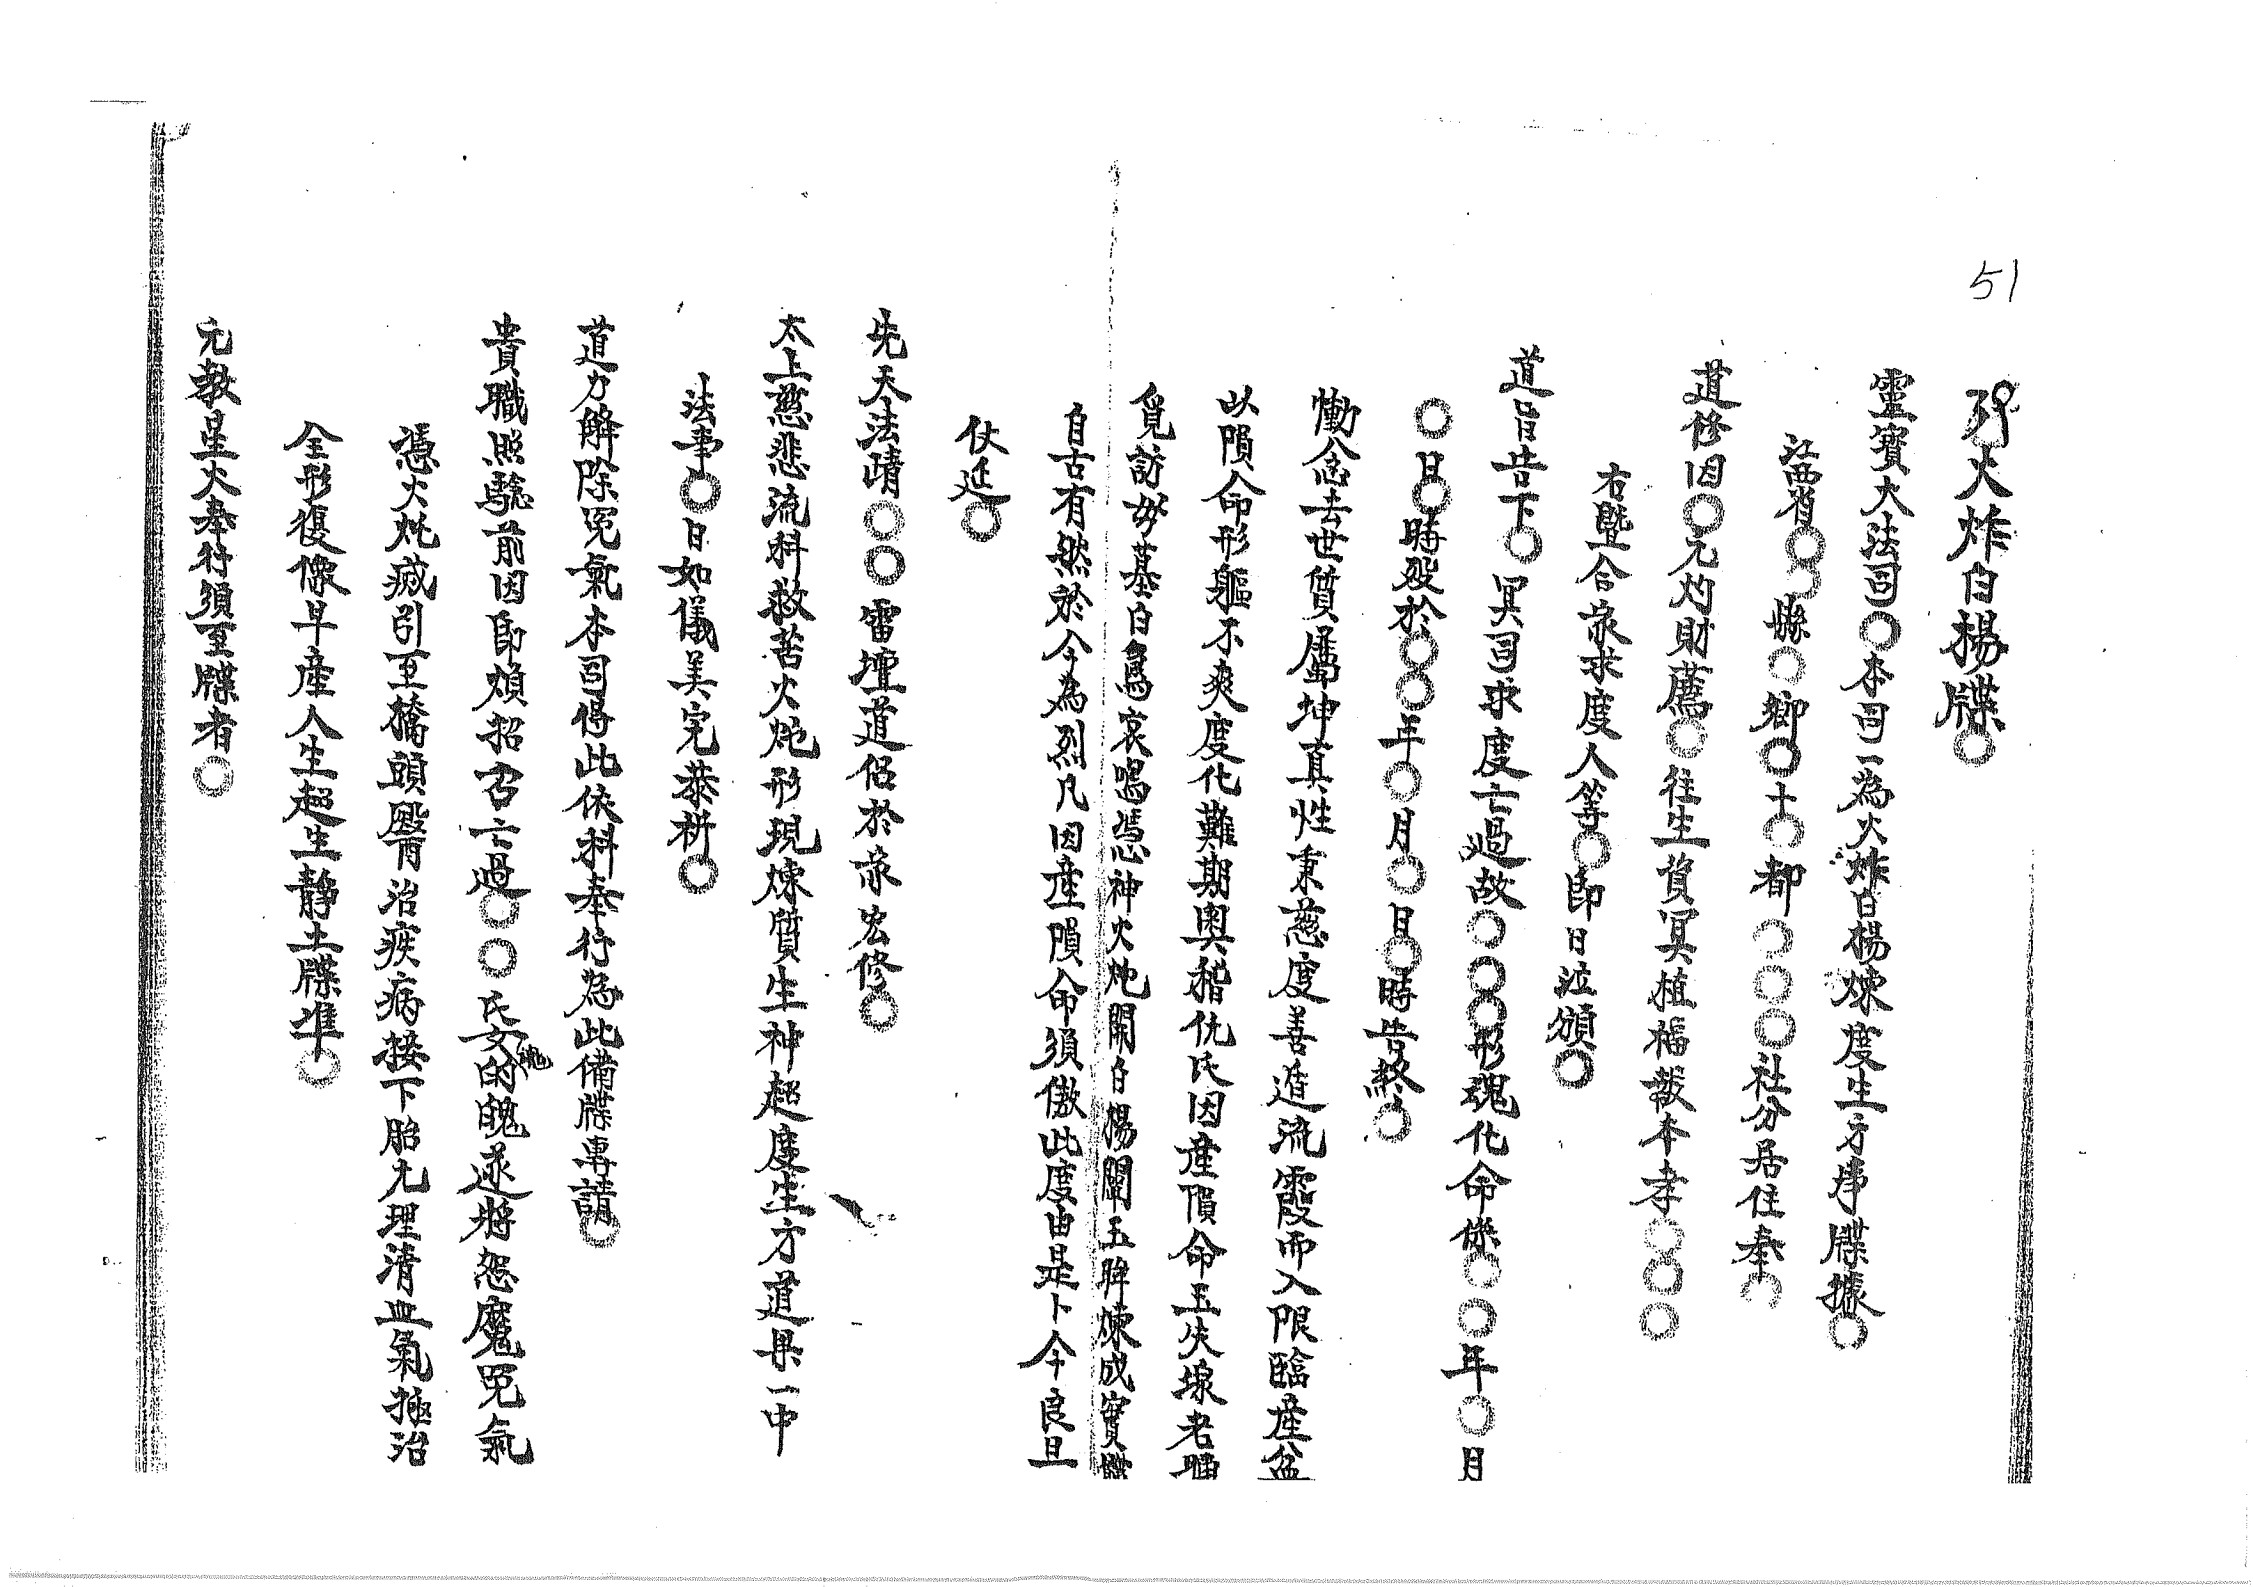 51
火炸白楊牒○
靈寶大法司○本司一為火炸白楊煉度生方事牒據○
江西省○○縣○鄉○十○都○○○社分居住奉○
道修因○元灼財薦○往生資冥植福報本孝○○○
右曁合眾求度人等○即日泣頒○
道旨告下○冥司求度亡過故○○○形魂化命係○○年○月
○日○時歿於○○年○月○日○時告終○
慟念去世質屬坤真性秉慈度善遁流霞而入限臨產盆
以隕命形軀不爽度化難期輿稽仇氏因產隕命玉失塚老
覓訪妙墓白烏哀喝憑神火炮開白楊闡玉眸煉成寶
自古有然於今為烈凡因產隕命須傲此度由是卜今良旦
仗延○
先天法靖○○雷壇道侶於家修○
太上慈悲流科救苦火炮形現煉質生神超度生方道果一中
法事○日如儀美完恭析○
道力解除冤氣本司得此依科奉行為此備牒專請○
貴職照驗前因即煩招召亡過○○氏女的魂魄遂將怨魔冤氣
憑火炮滅引至橋頭醫胃治疾病接下胎元理清血氣拯治
全形復像早產人生超生靜土牒準○
元教星火奉行須至牒者○